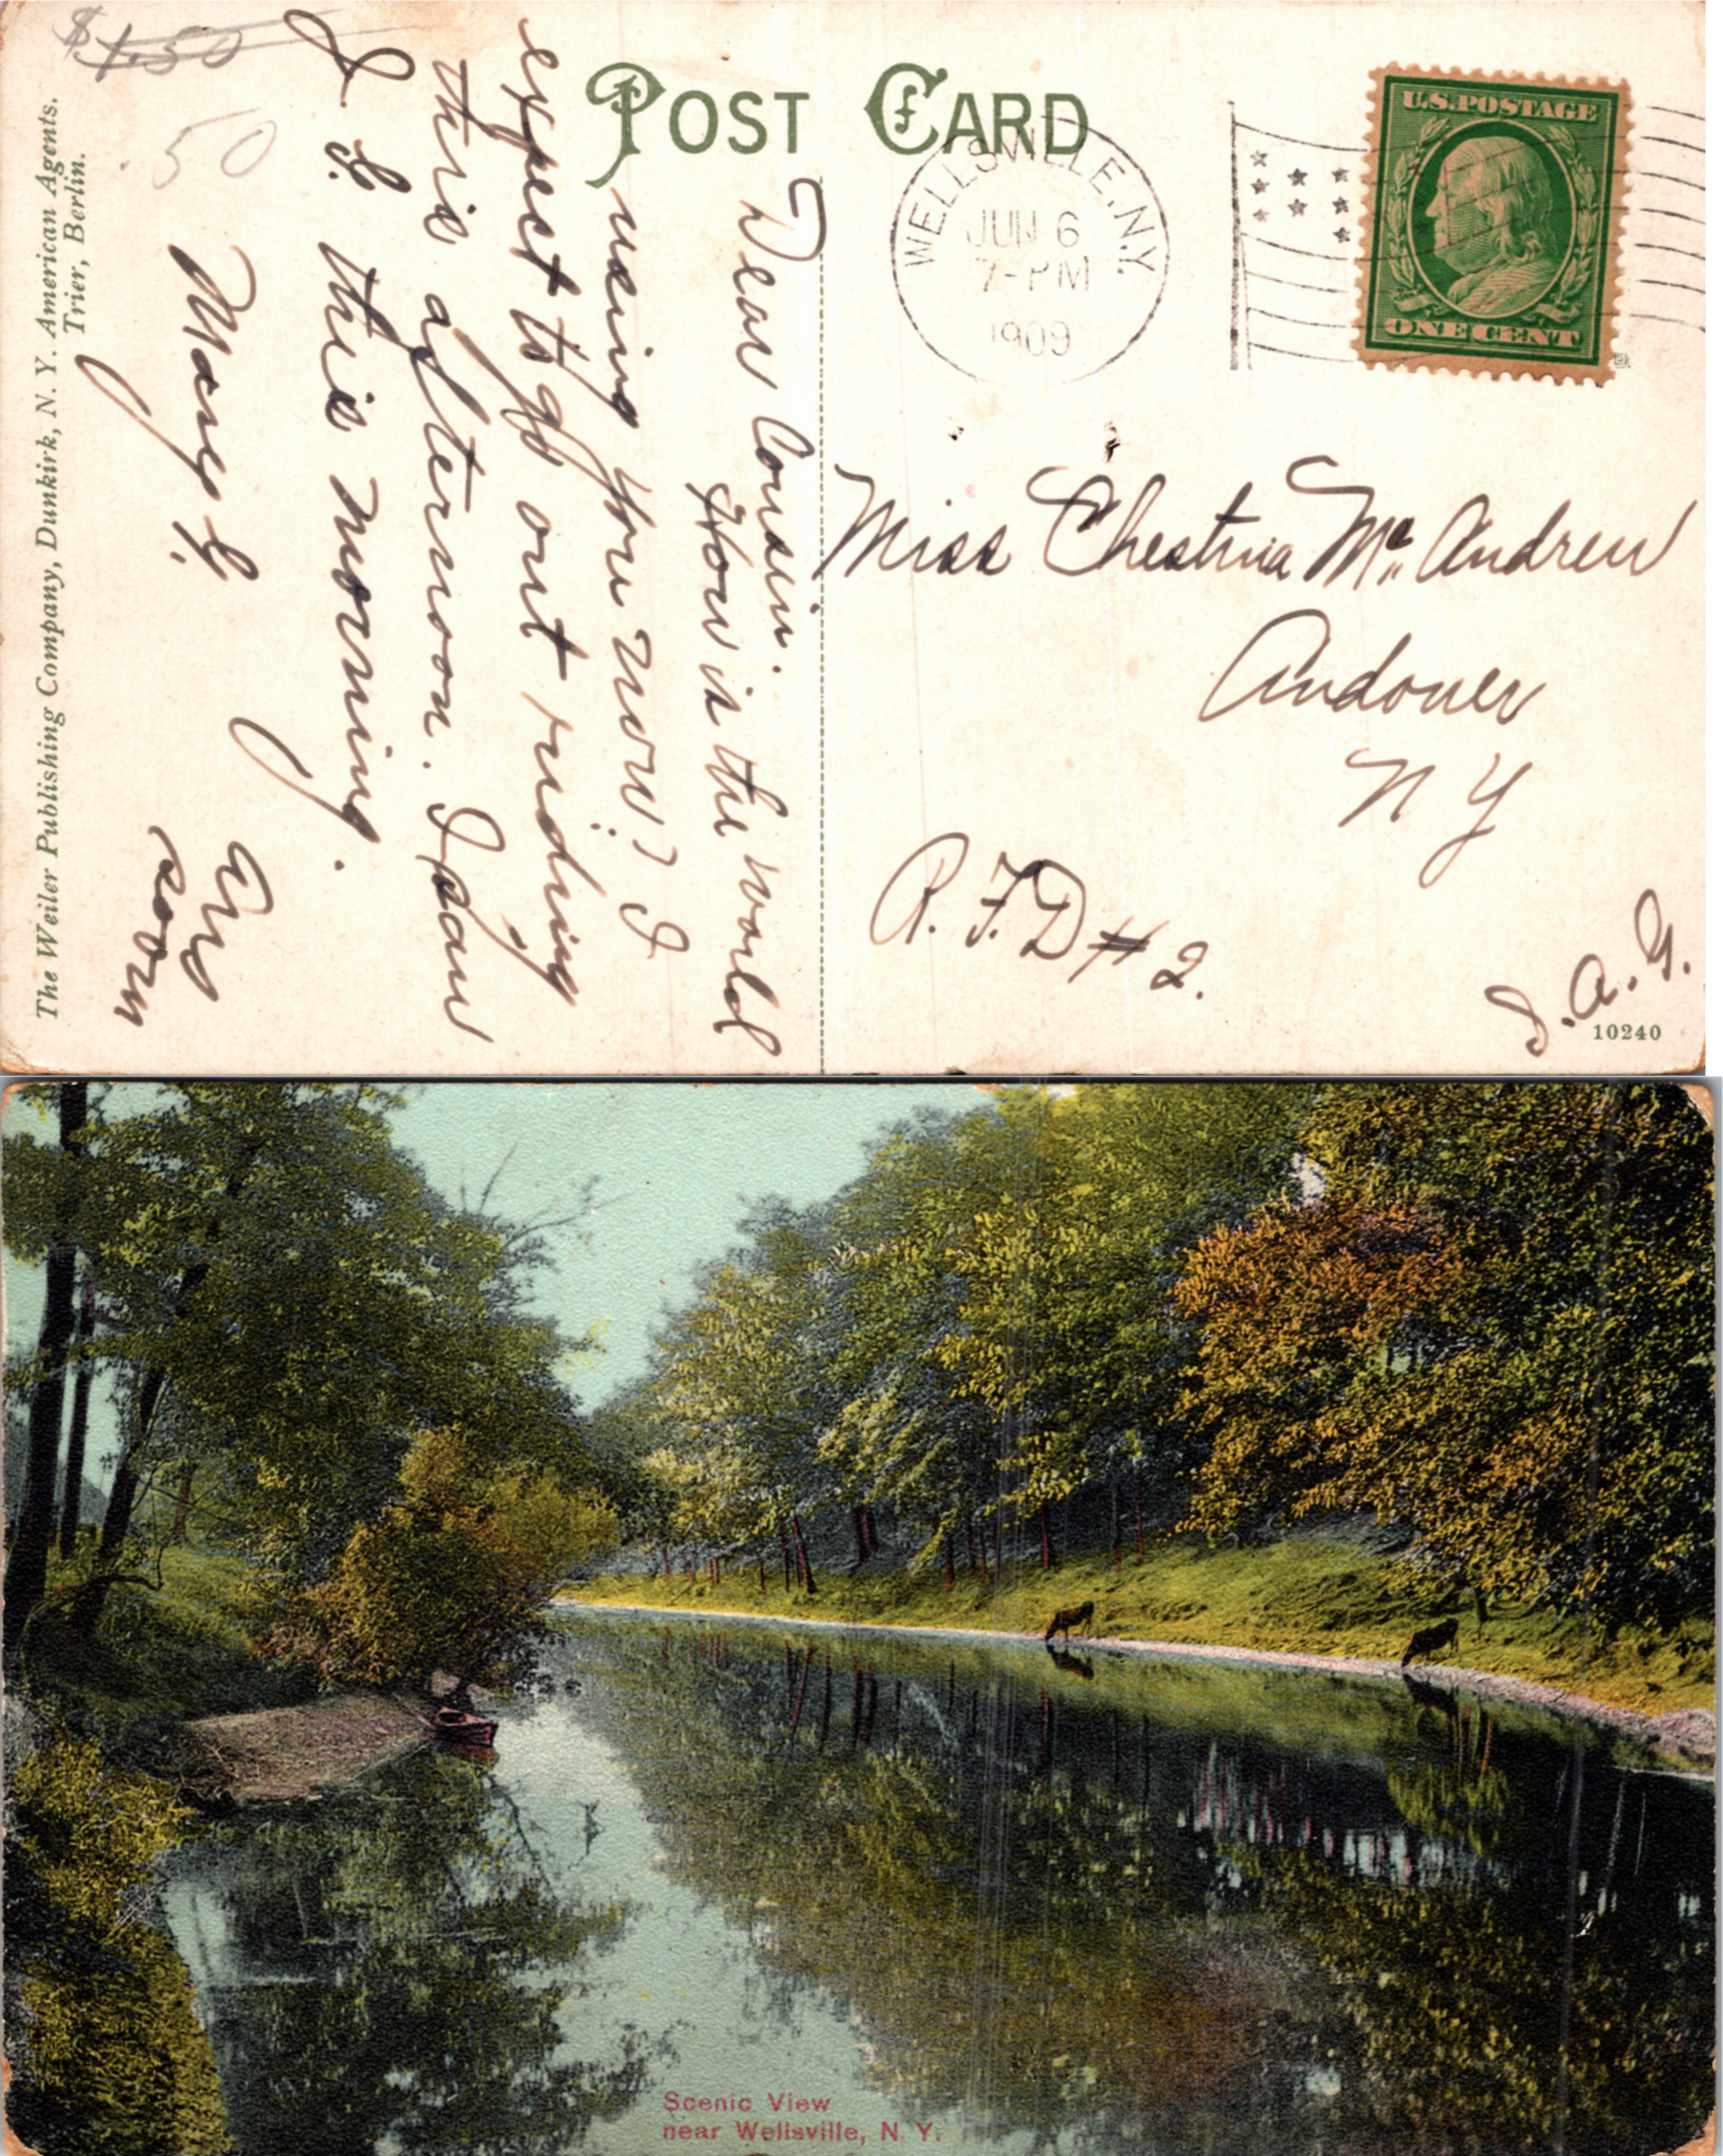 POST CARD
WELLSVILLE, N.Y.
JUN 6
7-PM
1909
U.S. POSTAGE
ONE CENT
Miss Chestina Mc Andrew
Andover
N Y
R. F. D # 2.
S. A. G.
10240
Dear Cousin.
How is the world
using you now? I
expect to go out riding
this afternoon. I saw
J. L. this morning.
Mary L.
Ans
soon
$1.50
.50
The Weiler Publishing Company, Dunkirk, N. Y. American Agents.
Trier, Berlin.
Scenic View
near Wellsville, N. Y.